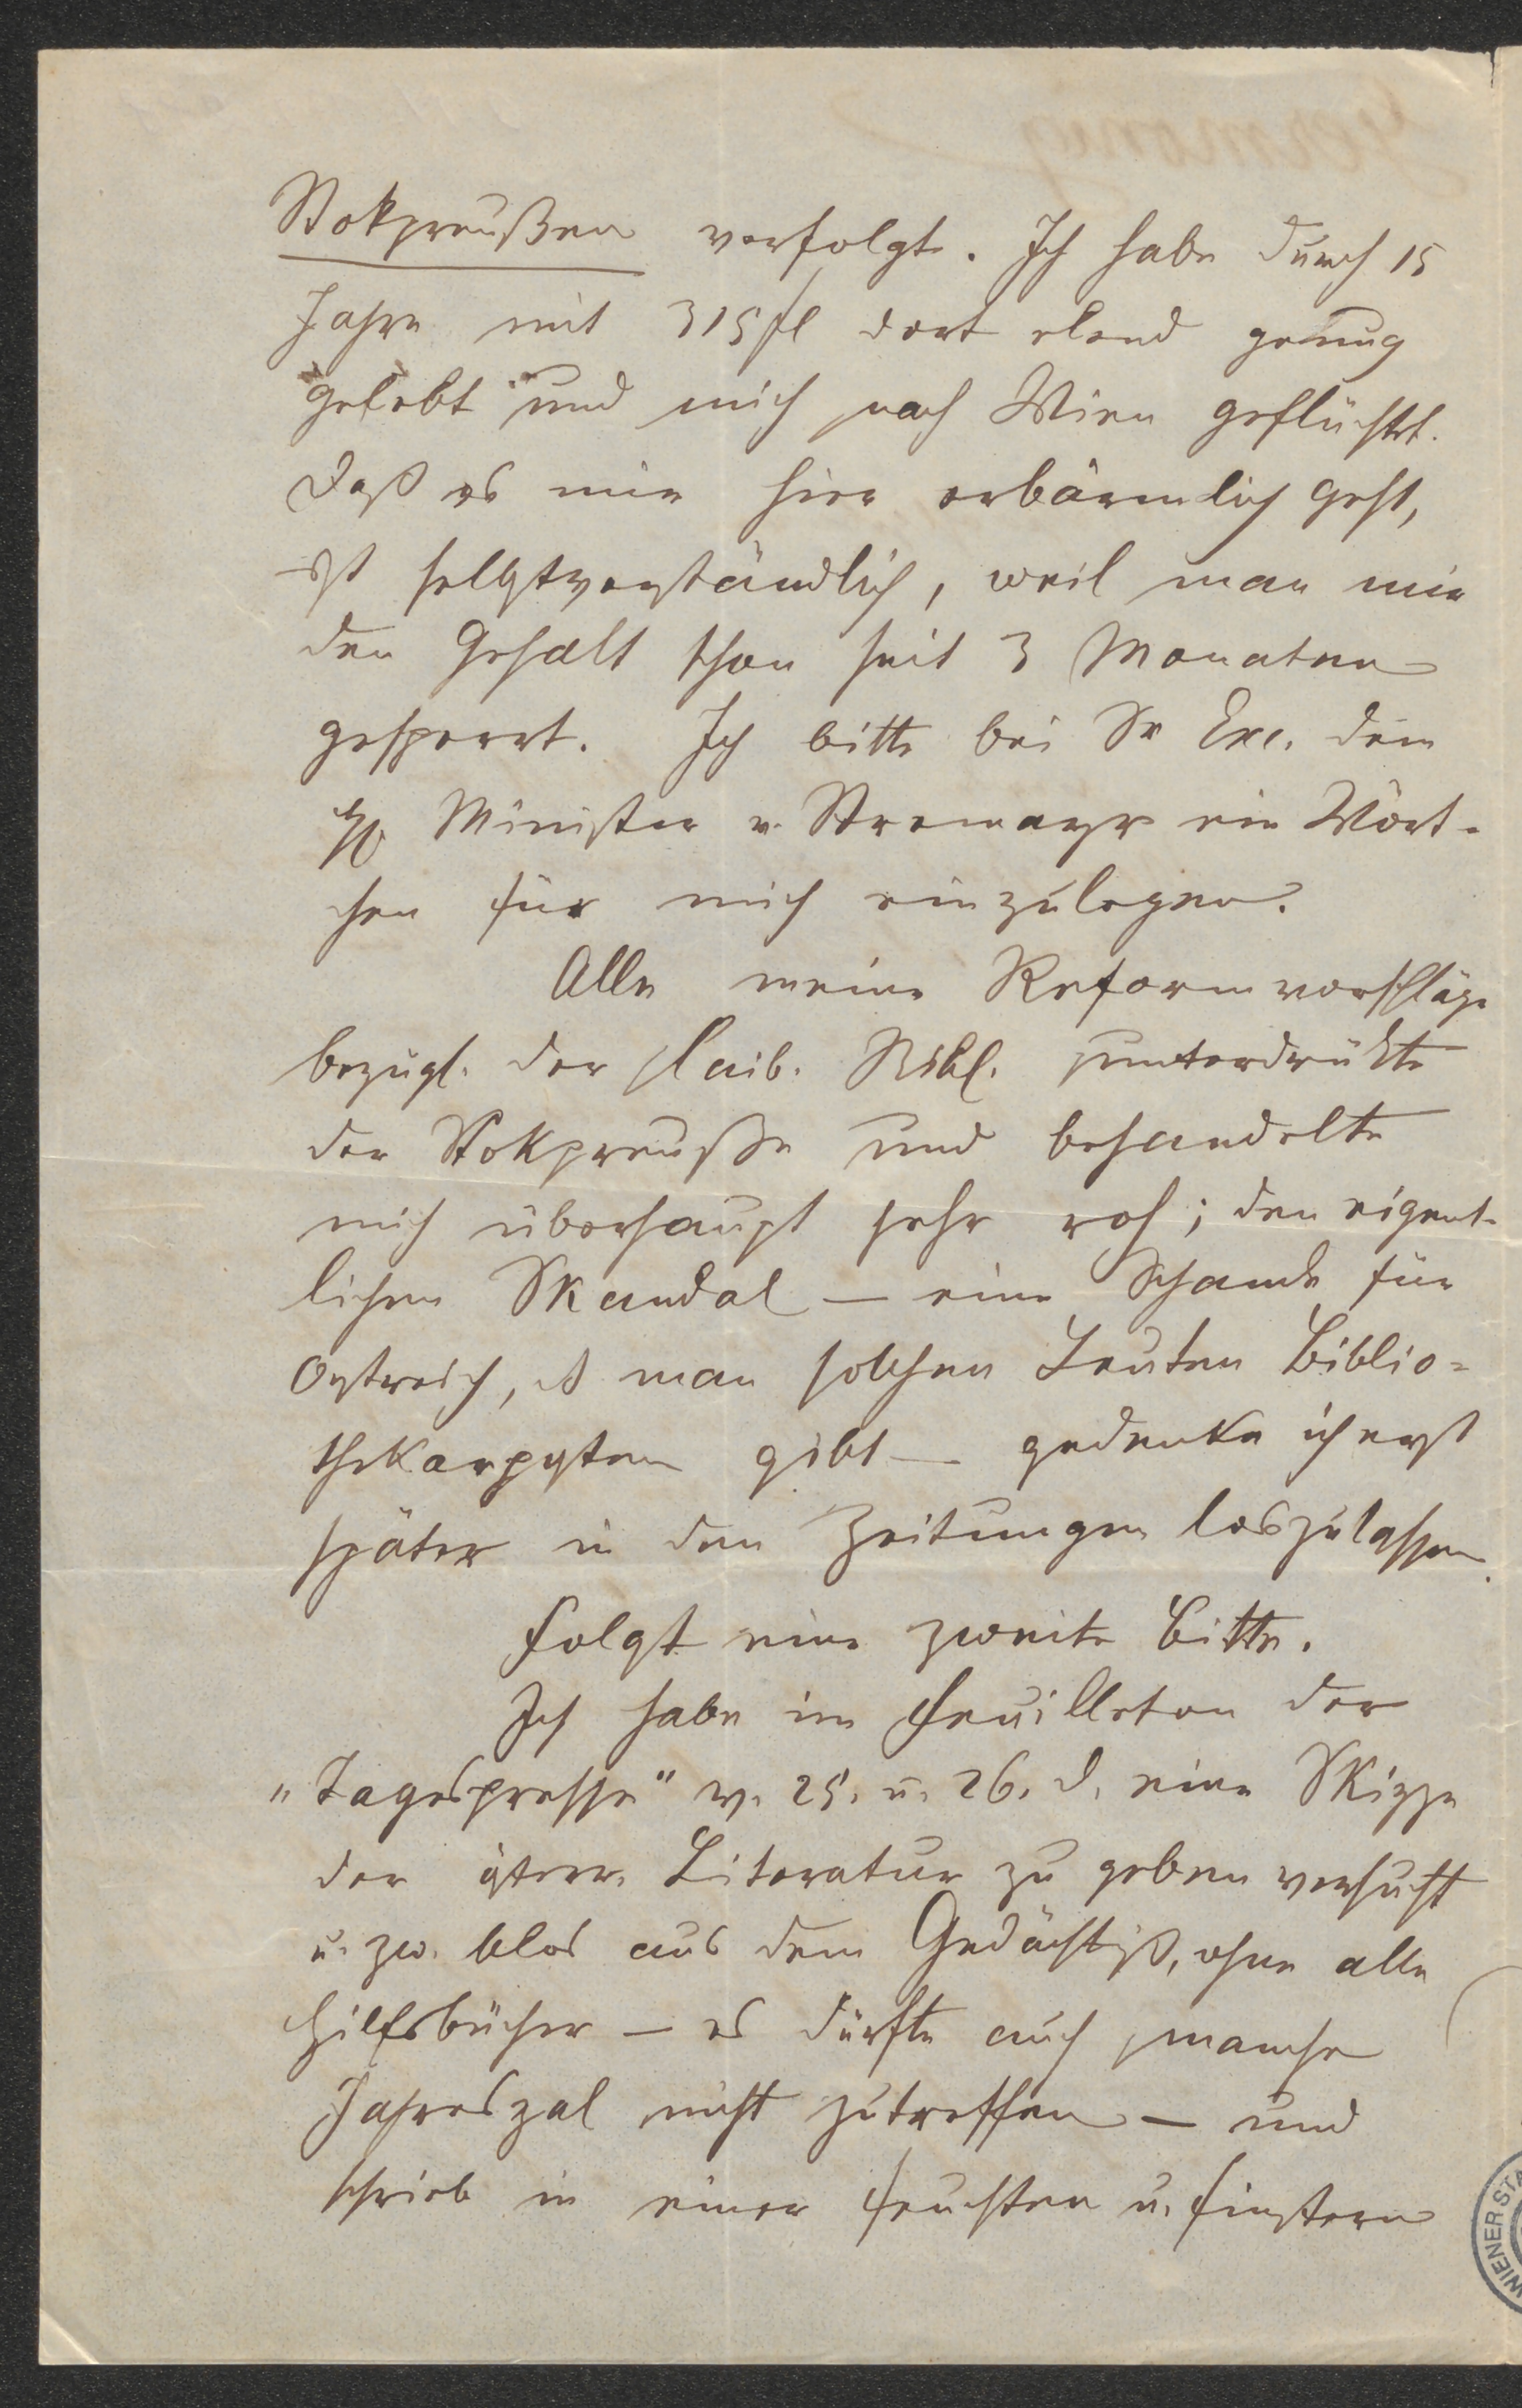 Stokpreußen verfolgt. Ich habe durch 15
Jahre mit 315 fl dort elend genug
gelebt und mich nach Wien geflüchtet.
Daß es mir hier erbärmlich geht,
ist selbstverständlich, weil man mir
den Gehalt schon seit 3 Monaten
gesperrt. Ich bitte bei Sr Exc. dem
H Minister v. Stremayr ein Wört-
chen für mich einzulegen.
Alle meine Reformvorschläge
bezügl. der Laib. Bibl. unterdrükte
der Stokpreuße und behandelte
mich überhaupt sehr roh; den eigent-
lichen Skandal — eine Schande für
Östreich, man solchen Leuten Biblio-
thekarposten gibt — gedenke ich erst
später in den Zeitungen loszulassen.
Folgt eine zweite Bitte.
Ich habe im Feuilleton der
„Tagespresse" v. 25. u. 26. d. eine Skizze
der österr. Literatur zu geben versucht
u. zw. blos aus dem Gedächtniß, ohne alle
Hilfsbücher — es dürfte auch manche
Jahreszal nicht zutreffen — und
schrieb in einer feuchten u. finstern
WIENER STA